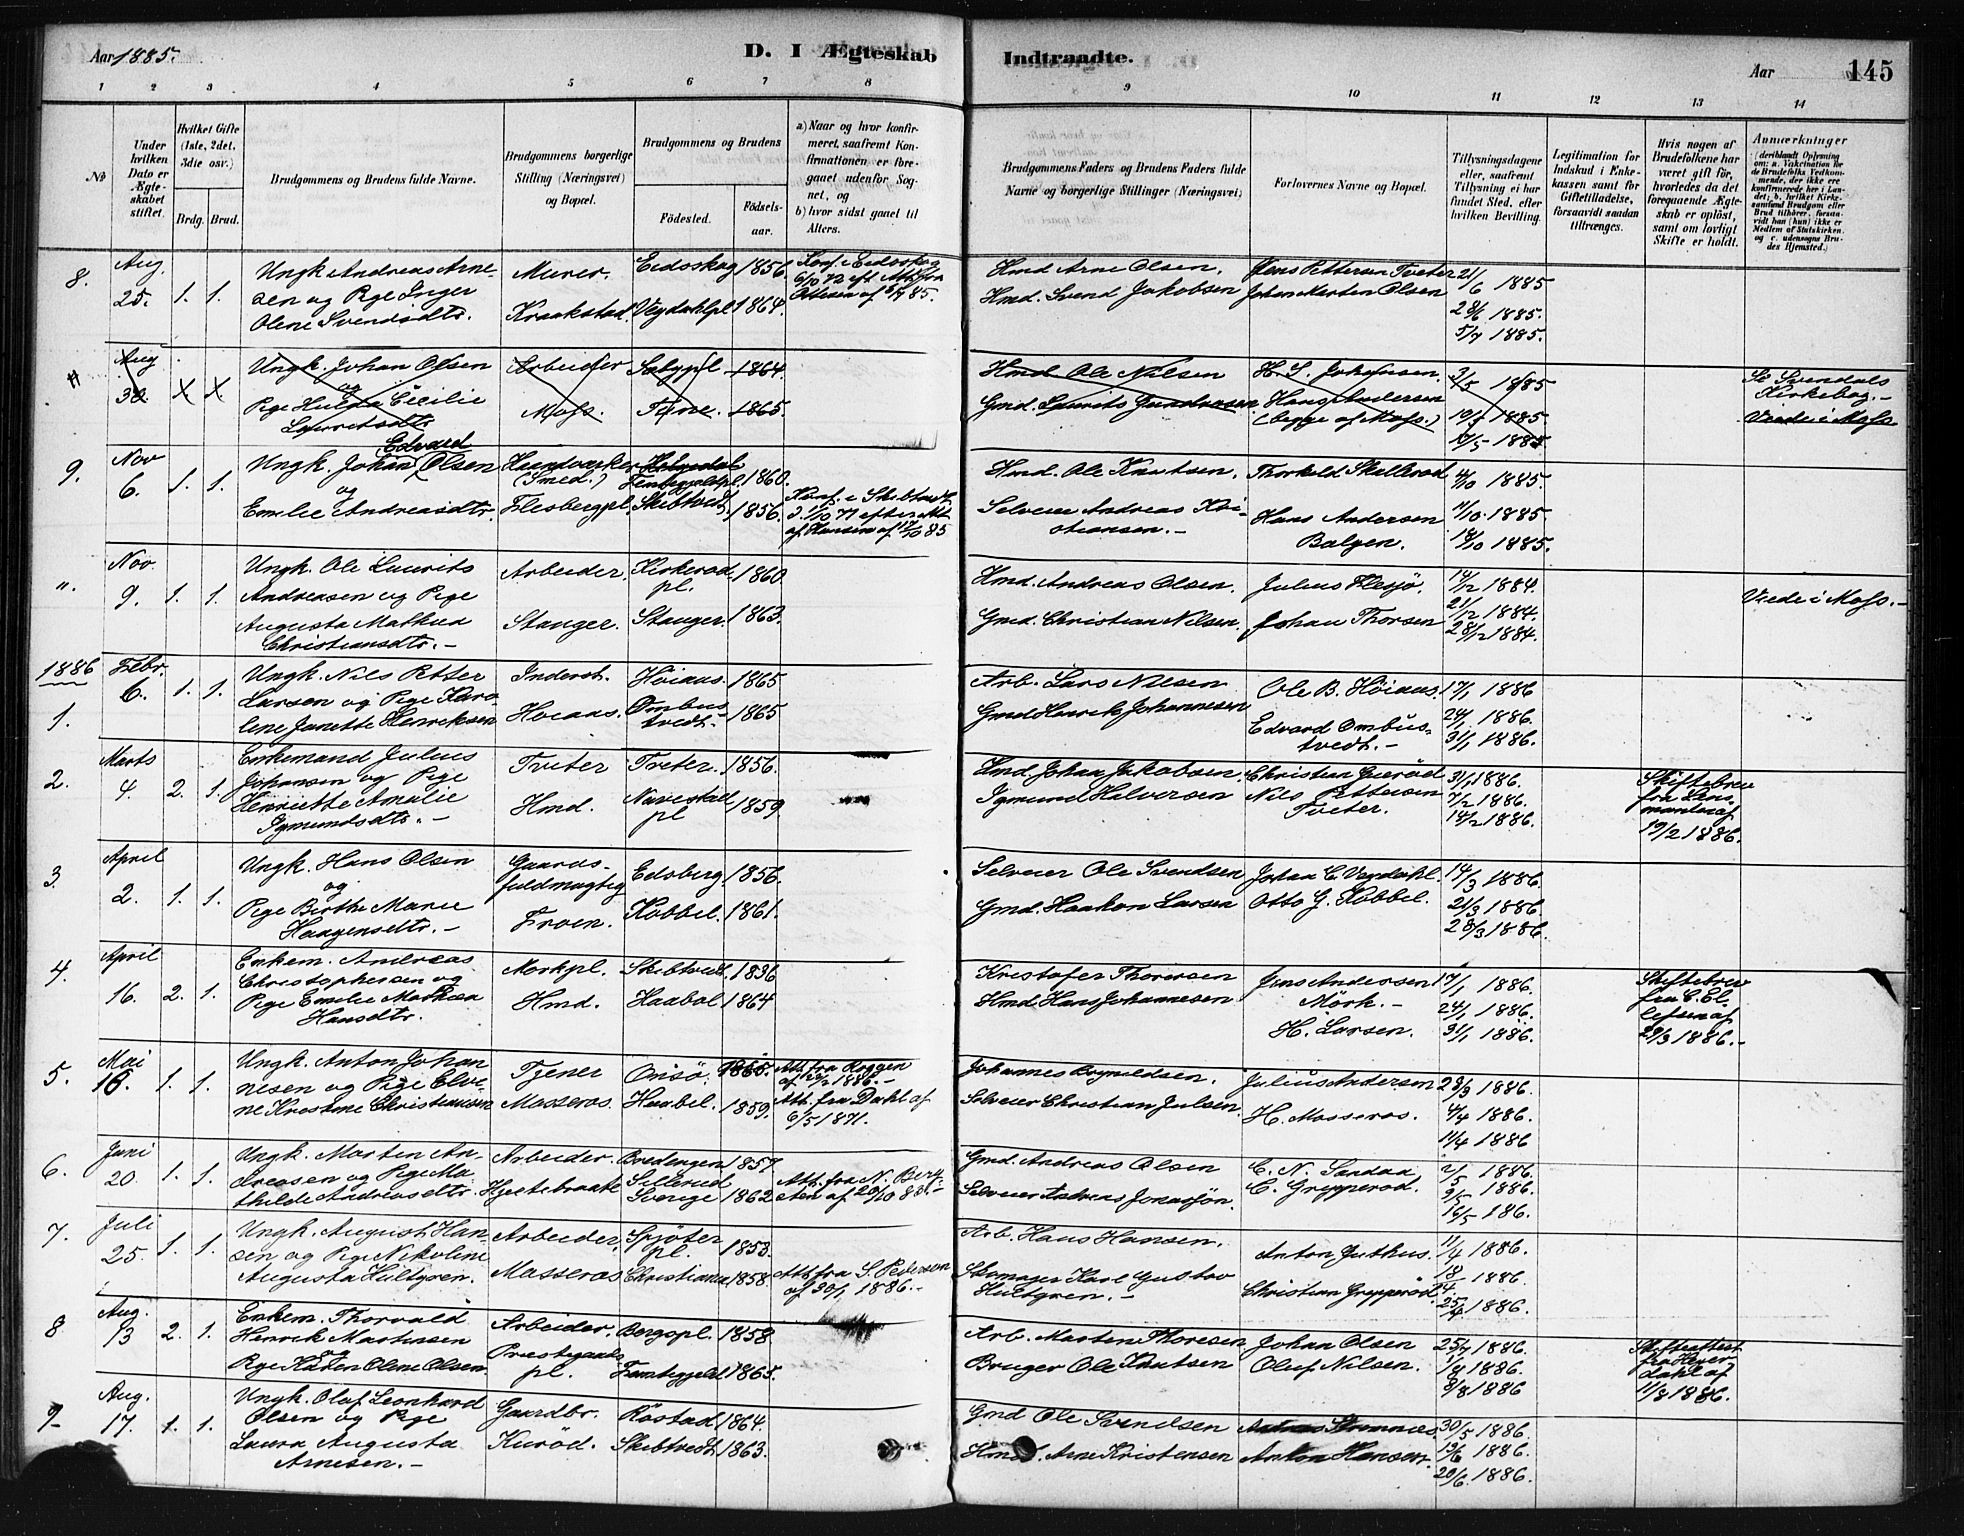 Aar 1885.
D. I Ægteskab Indtraadte.
Aar 145
1 2 3 4 5 6 7 8 9 10 11 12 13 14
No
Under hvilken Dato er Ægteskabet stiftet.
Hvilket Gifte (1ste, 2det, 3die osv.)
Brdg. Brud.
Brudgommens og Brudens fulde Navne.
Brudgommens borgerlige Stilling (Næringsvei) og Bopæl.
Brudgommens og Brudens
Fødested.
Fødselsaar.
a) Naar og hvor konfirmeret, saafremt Konfirmationen er foregaaet udenfor Sognet, og
b) hvor sidst gaaet til Alters.
Brudgommens Faders og Brudens Faders fulde Navne og borgerlige Stillinger (Næringsvei)
Forlovernes Navne og Bopæl.
Tillysningsdagene eller, saafremt Tillysning ei har fundet Sted, efter hvilken Bevilling.
Legitimation for Indskud i Enkekassen samt for Giftetilladelse, forsaavidt saadan tiltrænges.
Hvis nogen af Brudefolkene har været gift før, hvorledes da det foregaaende Ægteskab er opløst, samt om lovligt Skifte er holdt.
Anmærkninger
(deriblandt Oplysning om: a. Vakcination for de Brudefolks Vedkommende, der ikke ere konfirmerede her i Landet; b. hvilket Kirkesamfund Brudgom eller Brud tilhører, forsaavidt han (hun) ikke er Medlem af Statskirken, og c. udensogns Brudes Hjemsted.)
8. Aug. 25. 1. 1.
Ungk Andreas Arnesen og Pige Inger Olene Svendsdtr.
Murer. Kraakstad.
Eidsskog 1856.
Vegdahlpl 1864.
Konf. i Eidsskog 6/10 72 eft. Att. fra Ottesen af 85.
Hmd Arne Olsen.
Hmd. Svend Jakobsen
Jens Pettersen Tveter
Johan Martin Olsen
21/6 1885
28/6 1885.
5/7 1885.
" Aug 30. X X
Ungk. Johan Olsen og Pige Hulda Cecilie Lauritsdtr
Arbeider Moss.
Sabypl 1864.
1865.
Hmd Ole Nilsen
Gmd. Laurits Gundersen
H. S. Johansen.
Hans Andersen
(begge af Moss.)
3/5 1885
10/5 1885
17/5 1885
Se Svendals Kirkebog.
Viede i Moss
9. Nov 6. 1. 1.
Ungk. Johan Edvard Olsen og Emilie Andreasdtr.
Haandværker (Smed.) Flesbergpl.
1860.
Skibtvedt 1856.
Konf. i Skibtvedt 1/10 71 efter Att. af Hansen af 17/10 85
Hmd. Ole Knutsen.
Selveier Andreas Kristiansen.
Thorkeld Skullerod
Hans Andersen Balgen.
4/10 1885.
11/10 1885.
18/10 1885.
". Nov. 9. 1. 1.
Ungk. Ole Laurits Andreasen og Pige Augusta Mathea Christiansdtr.
Arbeider. Stanger.
Kirkerød pl. 1860.
Stanger. 1863.
Hmd. Andreas Olsen.
Gmd. Christian Nilsen.
Julius Flesjø.
Johan Thorsen
14/12 1884.
21/12 1884.
28/12 1884.
Viede i Moss.
1886
1. Febr. 6. 1. 1.
Ungk. Nils Petter Larsen og Pige Karolene Janette Henriksen
Inderst. Høiaas.
Høiaas 1865
Ombustvedt. 1865
Arb. Lars Nilsen
Gmd Henrik Johannesen
Ole B. Høiaas.
Edvard Ombustvedt.
17/1 1886
24/1 1886.
31/1 1886.
2. Marts 4. 2. 1.
Enkemand Julius Johansen og Pige Henriette Amalie Igmundsdtr.
Tveter Hmd.
Tveter. 1856.
Navestad pl 1859
Hmd. Johan Jakobsen.
Igmund Halvorsen
Christian Guerød
Nils Pettersen Tveter.
31/1 1886.
7/2 1886.
14/2 1886.
Skiftebrev fra Lensmanden af 19/2 1886.
3. April 2. 1. 1.
Ungk. Hans Olsen og Pige Berthe Marie Haagensdtr.
Gaardsfuldmægtig Froen.
Edsberg. 1856.
Kobbel. 1861.
Selveier Ole Svendsen
Gmd. Haakon Larsen
Johan C. Vegdahl.
Otto G. Kobbel.
14/3 1886.
21/3 1886.
28/3 1886.
4. April 16. 2. 1.
Enkem. Andreas Christophersen og Pige Emilie Mathea Hansdtr.
Morkpl. Hmd.
Skibtvedt. 1836
Haabol 1864
Kristofer Thorersen
Hmd. Hans Johannesen
Jens Andersen Mörk.
H. Larsen.
17/1 1886.
24/1 1886.
31/1 1886.
Skiftebrev fra C. Ellefsen af 29/3 1886.
5. Mai 16. 1. 1.
Ungk. Anton Johannesen og Pige Elvine Kristine Christiansen
Tjener Masseros.
Onsö. 1865.
Haabel. 1859.
Att. fra Roggen af 1886.
Att. fra Dahl af 6/5 1871.
Johannes Bognildsen.
Selveier Christian Julsen.
Julius Andersen
H. Masseros.
28/3 1886.
4/4 1886.
11/4 1886
6. Juni 20. 1. 1.
Ungk. Marten Andreasen og Pige Mathilde Andreasdtr.
Arbeider. Hjestebraate
Bredengen 1857.
Sillerud Sverige 1862.
Att. fra N. af 20/10 83.
Gmd. Andreas Olsen
Selveier Andreas Jonassjön.
C. N. Sandaa
C. Grepperød.
2/5 1886.
9/5 1886.
16/5 186.
7. Juli 25. 1. 1.
Ungk. August Hansen og Pige Nikoline Augusta Hultgren.
Arbeider. Masseros
Spjöter pl. 1853.
Christiania 1858.
Att. fra S. Pedersen af 30/1 1886.
Arb. Hans Hansen.
Skomager Karl Gustav Hultgren.
Anton Juthus.
Christian Grepperød.
11/4 1886.
18/4 1886.
25/4 1886.
8 Aug. 13 2. 1.
Enkem. Thorvald Henrik Martinsen og Pige Karen Oline Olsen.
Arbeider. Prestegaardspl.
Bergspl. 1858.
1865.
Arb. Marten Thoresen
Bruger Ole Knutsen
Johan Olsen
Oluf Nilsen.
25/7 1886.
1/8 1886.
8/8 1886
Skifteattest fra Heyerdahl af 11/8 1886.
9 Aug. 17. 1. 1.
Ungk. Olaf Leonhard Olsen og Pige Laura Augusta Arnesen.
Gaardbr. Kuröd.
Röstad 1864.
Skibtvedt. 1863.
Gmd Ole Svendsen
Hmd. Arne Kristensen
Anton Hansen.
30/5 1886.
13/6 1886.
20/6 1886.